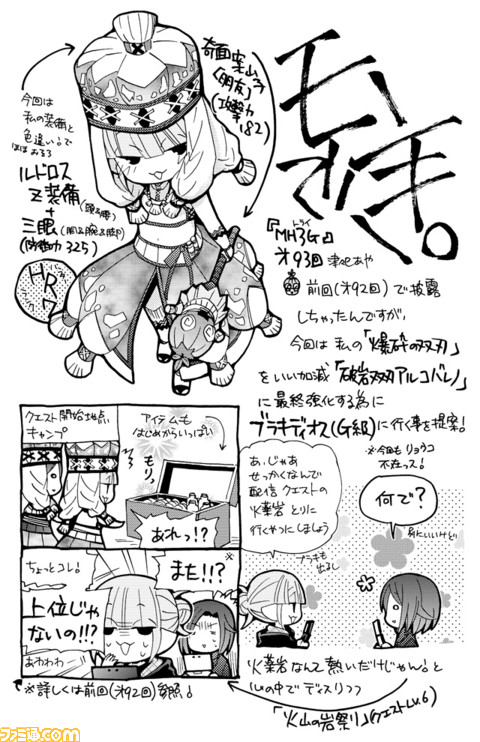 モンハン
でさく。
『MH3G』
トライ
オ93回 津地あや
前回(オ92回)で披露
しちゃったんですが、
今回は私の「爆砕の双刃」
をいい加減「破岩双刃アルコバレノ」
に最終強化する為に
ブラキディオス(G級)に行く事を提案!
※今回もリョウコ
不在っス!
奇面案山子
〈朋友〉
(攻撃力
182)
今回は
私の装備と
色違いで
ルドロス
Z装備(頭&腰)
+
三眼(胴&腕&脚)
(防御力 325)
HR7
クエスト開始地点
キャンプ
アイテムも
はじめからいっぱい
もりっ
あれっ!?
ちょっとコレ!
上位じゃ
ないの!!?
あわわわ
※
また!!?
※詳しくは前回(オ92回)参照!
あ、じゃあ
せっかくなんで
配信クエストの
火薬岩とりに
行くやつにしましょう
ブラキも
出るし
何で?
別にいいけど
火薬岩なんて熱いだけじゃん!と
心の中でディスりつつ
「火山の岩祭り」(クエストLv.6)
ファミ通.com